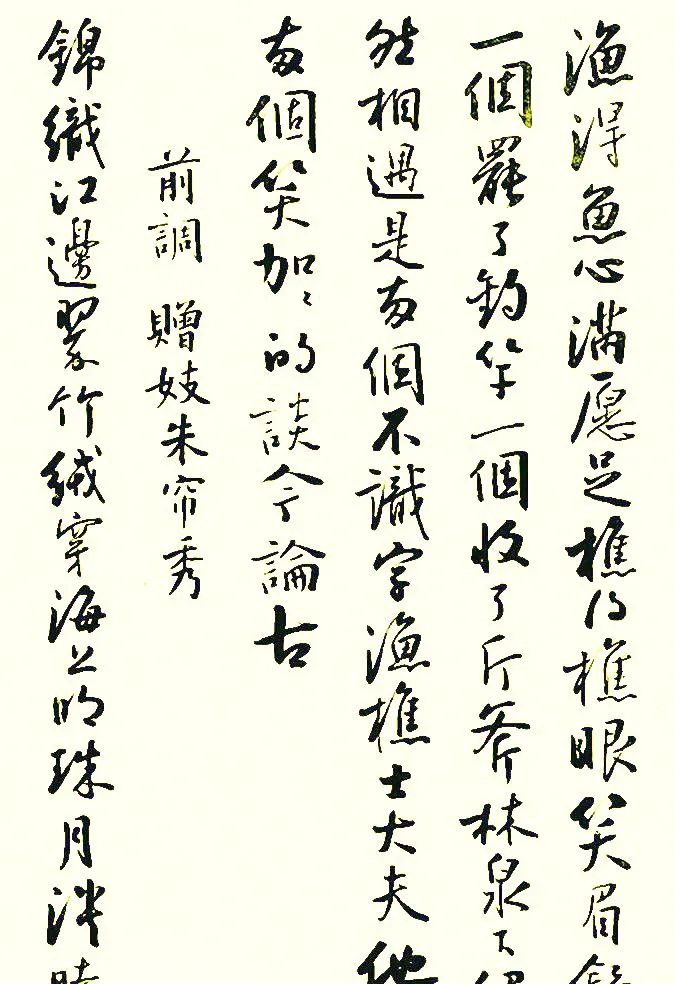 漁得魚心滿愿足樵得樵眼笑眉
一個罷了釣竿一個收了斤斧林泉下
然相遇是兩個不識字漁樵士大夫他
兩個笑加〻的談今論古
前調 贈妓朱帘秀
錦織江邊翠竹絨穿海上明珠月淡